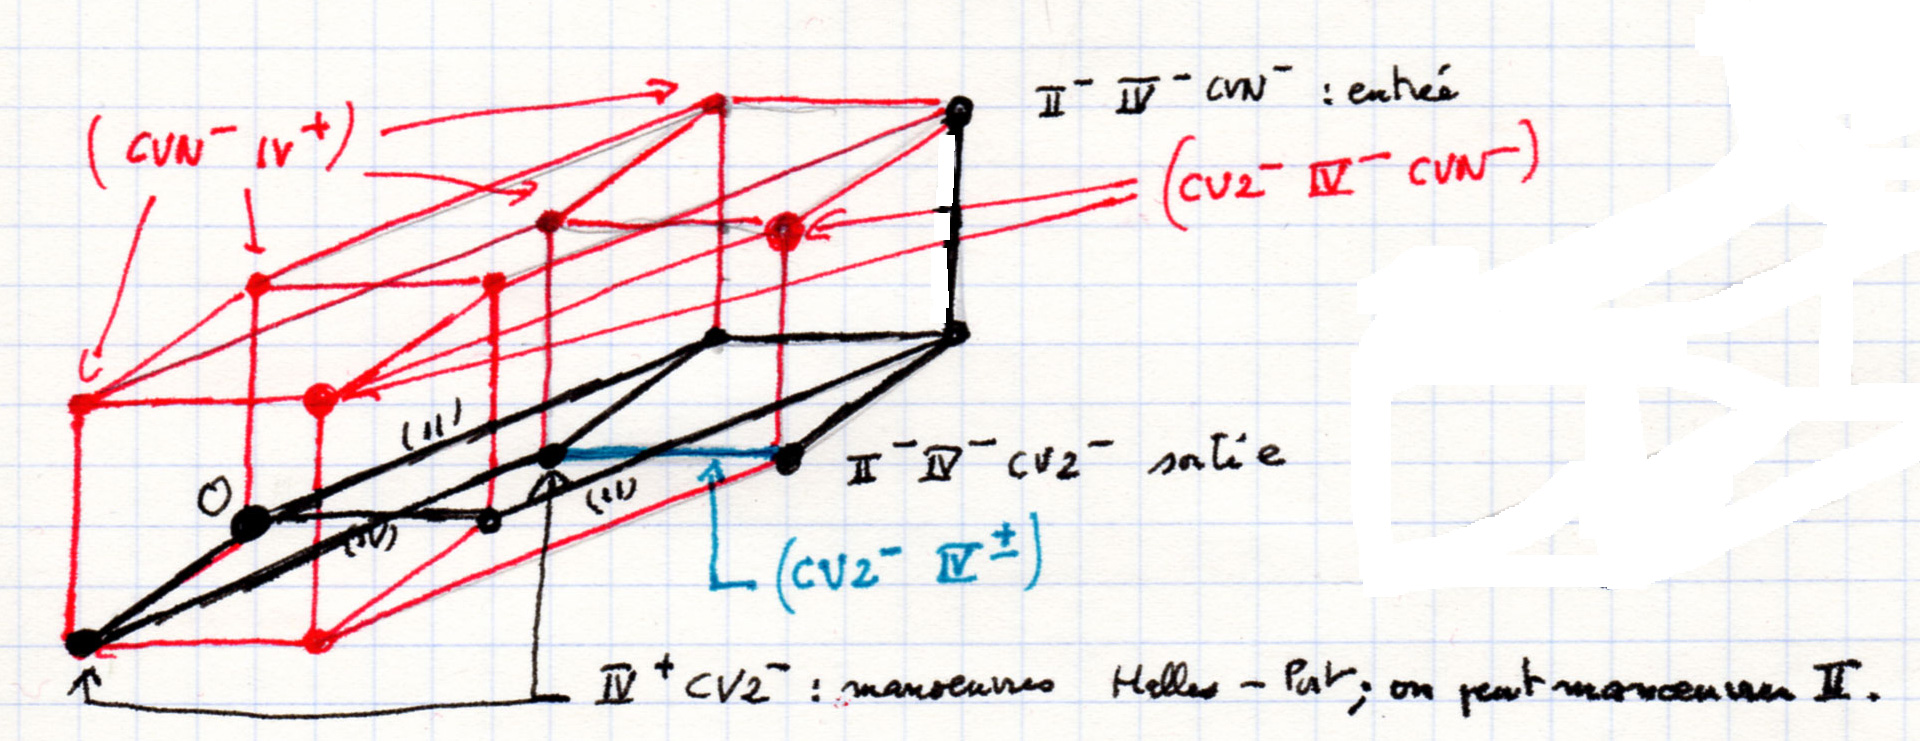 II⁻ IV⁻ CVN⁻ : entrée
(CVN⁻ IV⁺)
(CV2⁻ IV⁻ CVN⁻)
(II)
O
II⁻ IV⁻ CV2⁻ sortie
(II)
(IV)
(CV2⁻ IV±)
IV⁺ CV2⁻ : manoeuvres Halles - Port ; on peut manoeuvrer II.